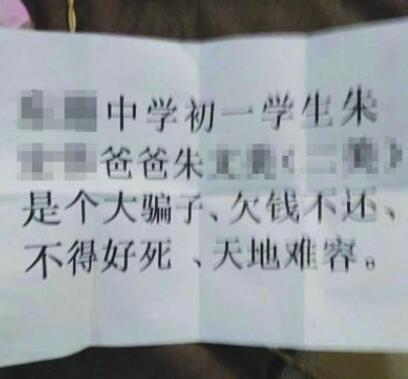 中学初一学生朱
爸爸朱
是个大骗子、欠钱不还、
不得好死、天地难容。